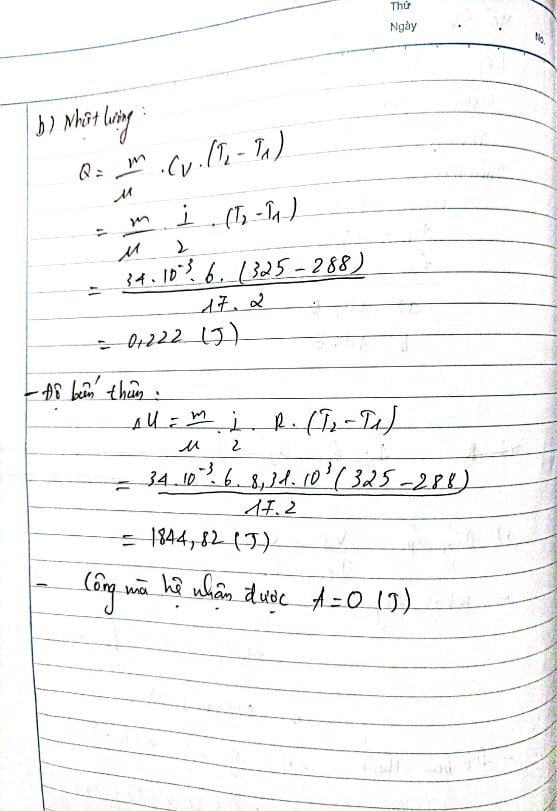 Thứ
Ngày
No.
b) Nhiệt lượng:
Q = m/μ . Cv . (T₂ - T₁)
= m/μ . i/2 . (T₂ - T₁)
= 34 . 10⁻³ . 6 . (325 - 288) / 17 . 2
= 0,222 (J)
- Độ biến thiên:
ΔU = m/μ . i/2 . R . (T₂ - T₁)
= 34 . 10⁻³ . 6 . 8,31 . 10³ (325 - 288) / 17 . 2
= 1844,82 (J)
- Công mà hệ nhận được A = 0 (J)